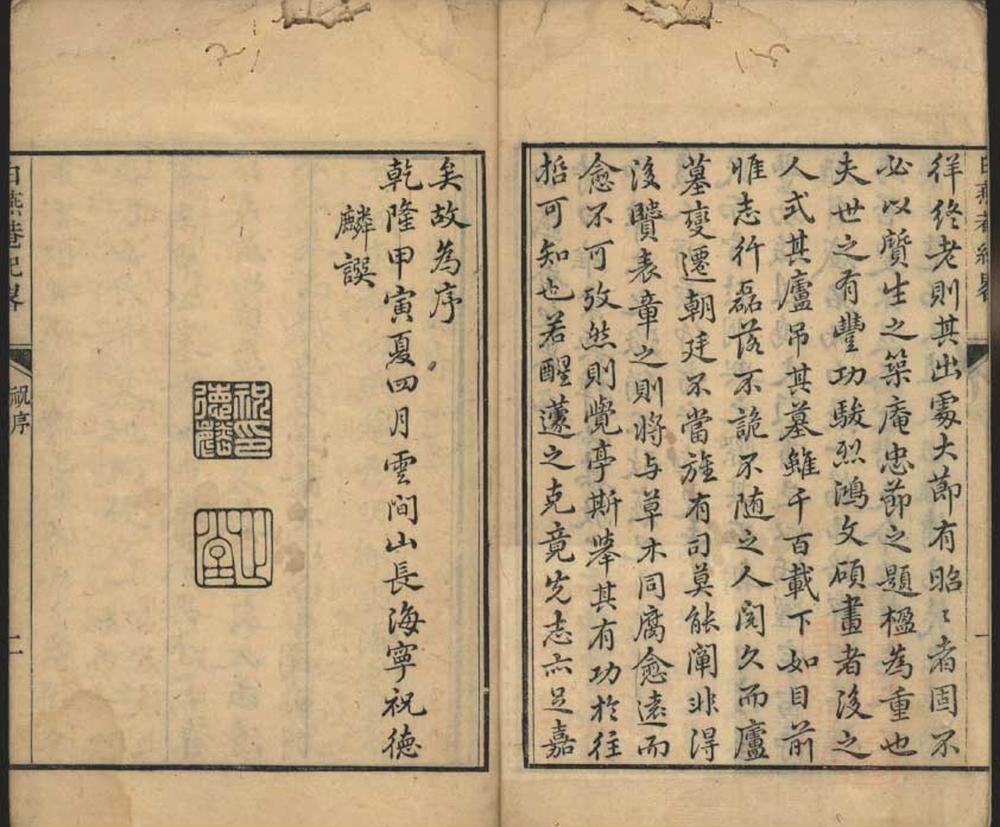 徉終老則其出處大節有昭〻者固不
必以質生之築庵忠節之題楹為重也
夫世之有豐功駿烈鴻文碩畫者後之
人式其廬吊其墓雖千百載下如目前
惟志行磊落不詭不随之人閱久而廬
墓變遷朝廷不當旌有司莫能闡非得
後賢表章之則將与草木同腐愈遠而
愈不可攷然則覺亭斯舉其有功於往
哲可知也若醒蘧之克竟先志亦足嘉
矣故為序
乾隆甲寅夏四月雲間山長海寧祝德
麟譔
祝印德麟
止堂
白燕菴紀畧
祝序
二
白燕菴紀畧
一